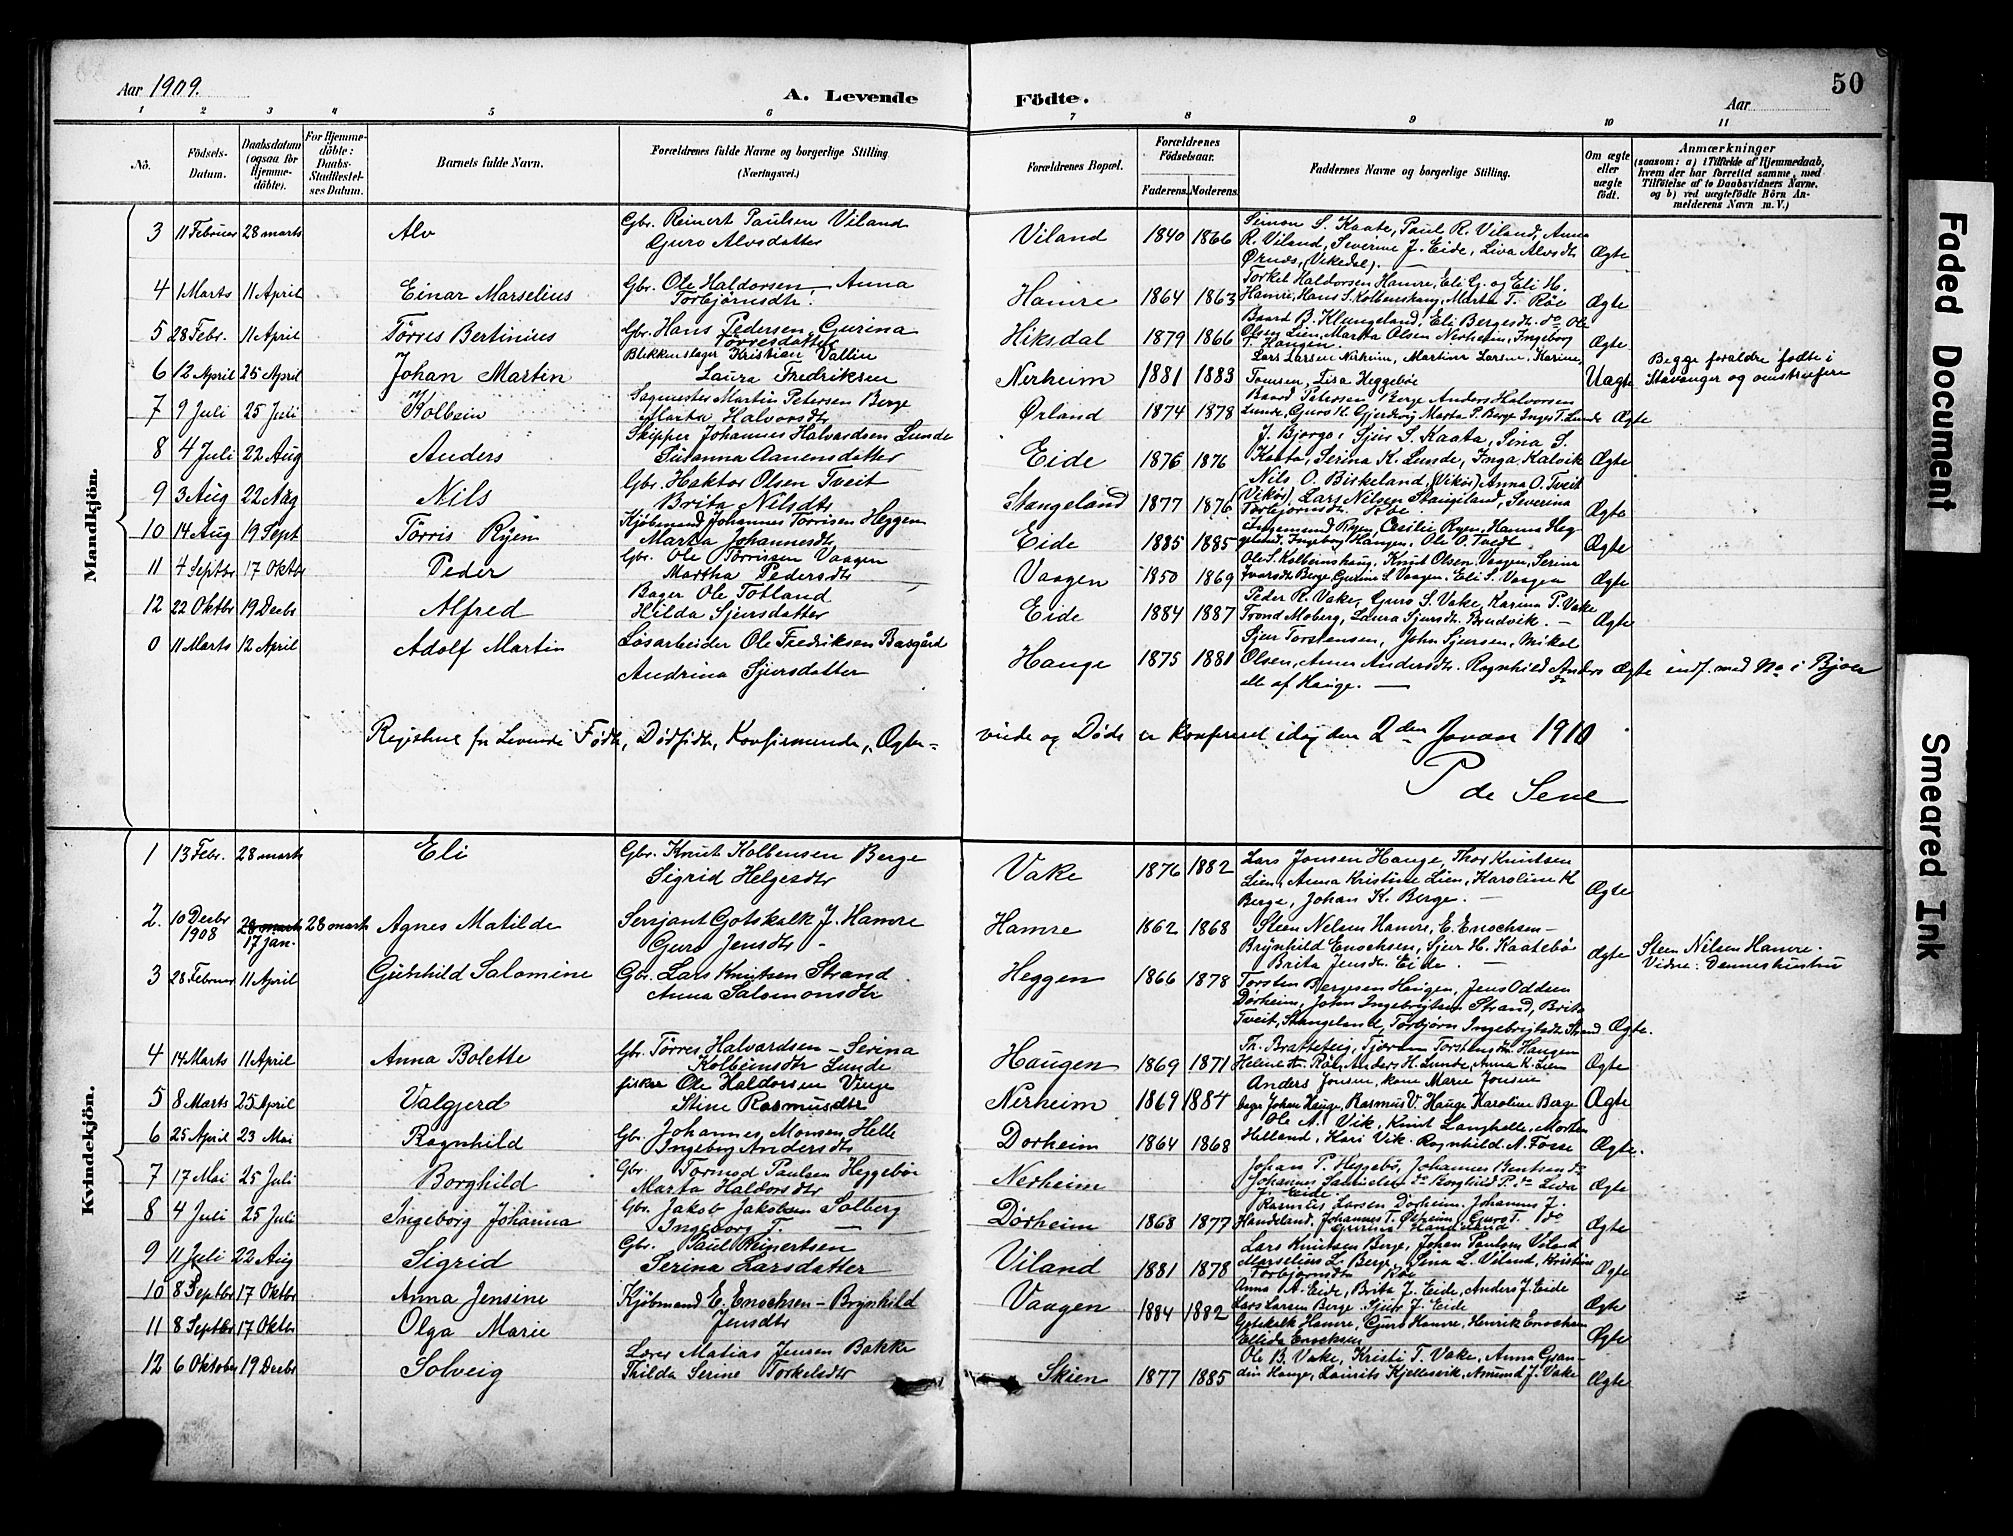 Aar 1909.
A. Levende Födte.
Aar
50
1 2 3 4 5 6 7 8 9 10 11
No.
Födsels-Datum.
Daabsdatum (ogsaa for Hjemmedöbte).
For Hjemmedöbte: Daabs-Stadfæstelses Datum.
Barnets fulde Navn.
Forældrenes fulde Navne og borgerlige Stilling (Næringsvei.)
Forældrenes Bopæl.
Forældrenes Födselsaar.
Faderens. Moderens.
Faddernes Navne og borgerlige Stilling.
Om ægte eller uægte födt.
Anmærkninger
(saasom: a) i Tilfælde af Hjemmedaab, hvem der har forrettet samme, med Tilföielse af to Daabsvidners Navne, og b) ved uægtefödte Börn Anmelderens Navn m. V.)
Mandkjön.
3 11 Februar 28 marts Alv Gbr. Reinert Paulsen Viland Guro Alvsdatter Viland 1840 1866 Simon S. Kaate, Paul R. Viland, Anna R. Viland, Severine J. Eide, Liva Alvsdtr Ørnæs, (Vikedal). Ægte
4 1 Marts 11 April Einar Marselius Gbr. Ole Haldorsen - Anna Torbjørnsdtr. Hamre 1864 1863 Torkel Haldorsen Hamre, Eli G. og Eli H. Hamre, Hans T. Kolbenshaug, Marta T. Røe Ægte
5 28 Febr. 11 April Tørres Bertinius Gbr. Hans Pedersen, Gurina Tørresdatter Hiksdal 1879 1866 Baard B. Klungeland, Eli Bergesdtr. do Ole Olsen Lien, Marta Olsen Nerheim, Ingeborg T. Haugen Ægte
6 12 April 25 April Johan Martin Blikkenslager Kristian Vallin Laura Fredriksen Nerheim 1881 1883 Lars Larsen Nerheim, Martine Larsen, Karine Tomsen, Lisa Heggebøe Uægte Begge forældre fødte i Stavanger og omstreifere
7 9 Juli 25 Juli Kolbein Sagmester Martin Petersen Berge Marta Halvorsdtr Ørland 1874 1878 Baard Petersen Berge Anders Halvorsen Lunde, Guro K. Gjerdevig Marta P. Berge Inger T. Lunde Ægte
8 4 Juli 22 Aug Anders Skipper Johannes Halvardsen Lunde Susanna Aanensdatter Eide 1876 1876 J. Bjorgo, Sjur S. Kaata, Sena S. Kaata, Serina K. Lunde, Inga Kalvik Ægte
9 3 Aug 22 Aug Nils Gbr. Haktor Olsen Tveit Brita Nilsdtr Stangeland 1877 1876 Nils O. Birkeland, (Vikør) Anna O. Tveit (Vikør), Lars Nilsen Stangeland, Severina Torbjørnsdtr. Røe. Ægte
10 14 Aug 19 Sept Tørris Ryen Kjøbmand Johannes Torrisen Heggen Marta Johannesdtr Eide 1885 1885 Ryen, Cecilie Ryen, Hanna Heggelund, Ingeborg Haugen, Ole O. Tvedt Ægte
11 4 Septbr 17 Oktbr Peder Gbr. Ole Tørrissen Vaagen Martha Pedersdtr Vaagen 1850 1869 Ole S. Kolbeinshaug, Knut Olsen Vaagen, Serina Ivarsdtr Berge, Gurine S. Vaagen, Eli S. Vaagen Ægte
12 22 Oktbr 19 Decbr Alfred Bager Ole Totland Hilda Sjursdatter Eide 1884 1887 Peder R. Vake, Guro S. Vake, Karina P. Vake Trond Moberg, Laura Sjursdtr. Budvik. Ægte
0 11 Marts 12 April Adolf Martin Løsarbeider Ole Fredriksen Basgård Andrina Sjursdatter Hauge 1875 1881 Sjur Torstensen, John Sjursen, Mikal Olsen, Anna Andersdtr. Ragnhild Anders do alle af Hauge. Ægte indf. med No i Bjoa
Registeret for Levende Fødte, Dødfødte, Konfirmerede, Ægteviede og Døde er konfereret idag den 2den Januar 1910
P de Seve
Kvindekjön.
1 13 Febr. 28 marts Eli Gbr. Knut Kolbensen Berge Sigrid Helgesdtr Vake 1876 1882 Lars Jonsen Hauge, Thor Knutsen Lien, Anna Kristine Lien, Karoline K Berge, Johan K. Berge. Ægte
2. 10 Decbr 1908 28 marts 17 jan. 28 marts Agnes Matilde Sersjant Gotskalk J. Hamre Guro Jensdtr Hamre 1862 1868 Steen Nelsen Hamre, E. Enochsen - Brynhild Enochsen, Sjur H. Kaatebø Brita Jensdtr. Eide. Ægte Steen Nilsen Hamre. Vidne: Dennes hustru
3 28 Februar 11 April Gunhild Salomine Gbr. Lars Knutsen Strand Anna Salomonsdtr Heggen 1866 1878 Torsten Bergesen Haugen, Jens Oddsen Dørheim, John Ingebrigtsen Strand, Brita Tveit, Stangeland, Torbjørn Ingebrigtsdtr Strand Ægte.
4 14 Marts 11 April Anna Bolette Gbr. Tørres Halvardsen - Serina Kolbeinsdtr Lunde Haugen 1869 1871 Th. Bratteteig, Tjøran Torstensdtr. Haugen Helene Røe, Anders H. Lunde, Anna K. Lien Ægte
5 8 Marts 25 April Valgjerd fisker Ole Haldorsen Vinge Stine Rasmusdtr Nerheim 1869 1884 Anders Jonsen, kone Marie Jonsen bager Johan Hauge, Rasmus V. Hauge Karoline Berge Ægte
6 25 April 23 Mai Ragnhild Gbr. Johannes Monsen Helle Ingeborg Andersdtr Dorheim 1864 1868 Ole A. Vik, Knut Langhelle, Morten Helland, Kari Vik. Ragnhild A. Fosse Ægte.
7 17 Mai 25 Juli Borghild Gbr. Tormod Paulsen Heggebøe Marta Haldorsdtr Nerheim Johans P. Heggebø, Johannes Bentsen do Johannes Samuelsen do Borghild P. do Liva J. Eide Ægte
8 4 Juli 25 Juli Ingeborg Johanna Gbr. Jakob Jakobsen Solberg Ingeborg T. Dørheim 1868 1877 Rasmus Larsen Dorheim, Johannes J. Handeland, Johannes T. Ølsheim, Guro T. do Gurina Handeland Ægte
9 11 Juli 22 Aug Sigrid Gbr. Paul Reinertsen Serina Larsdatter Viland 1881 1878 Lars Knutsen Berge, Johan Paulsen Viland Marselius L. Berge, Sena L. Viland, Kristine Torbjornsdtr Røe Ægte
10 8 Septbr 17 Oktbr Anna Jensine Kjøbmand E. Enochsen - Brynhild Jensdtr Vaagen 1884 1882 Anna A. Eide, Brita J. Eide, Anders J. Eide Lars Larsen Berge. Sjur J. Eide Ægte
11 8 Septbr 17 Oktbr Olga Marie Gotskalk Hamre, Guro Hamre, Henrik Enochsen Ellida Enochsen Ægte
12 6 Oktober 19 Decbr Solveig Lærer Matias Jensen Bakke Thilda Serine Torkelsdtr Skien 1877 1885 Ole B. Vake, Kristi T. Vake, Anna Grandin Hauge, Laurits Kjellesvik, Amund J. Vake Ægte
Faded Document
Smeared Ink